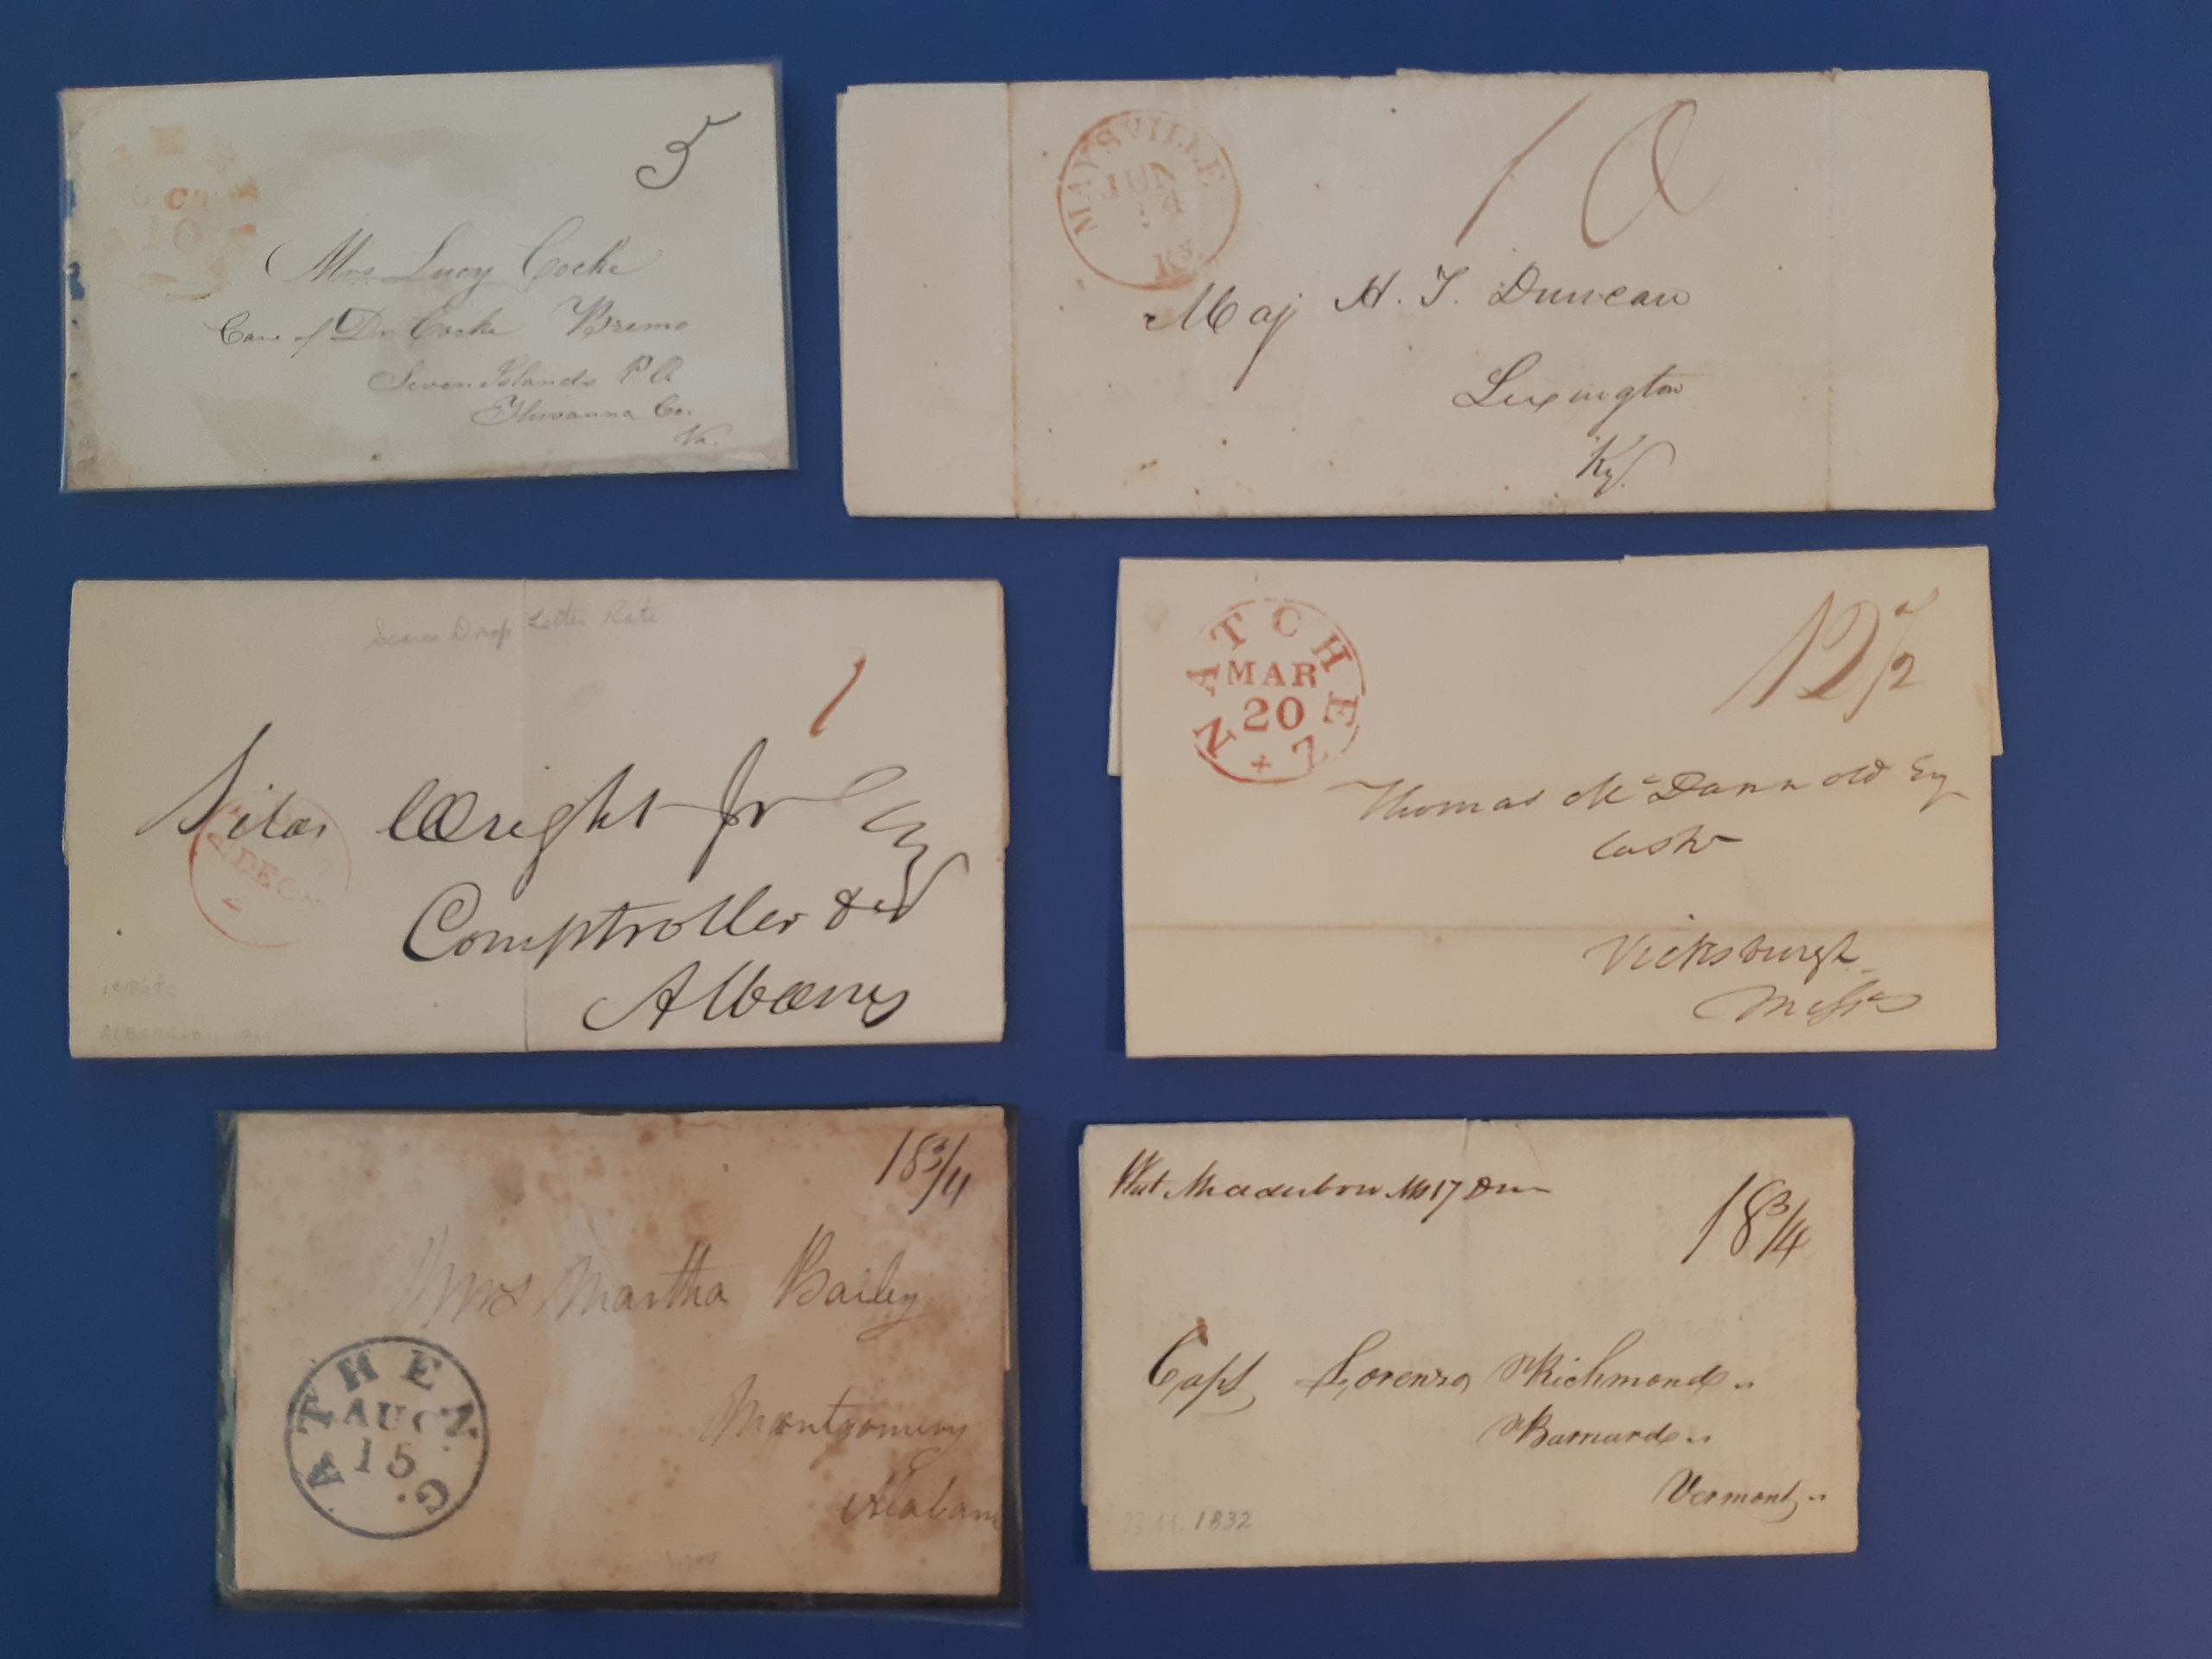 OCT
10
5
Mrs Lucy Cocke
Care of Dr Cocke Bremo
Seven Islands P.O
Fluvanna Co.
Va.
MAYSVILLE
JUN
Ky.
10
Maj H. T. Duncan
Lexington
Ky.
Scarce Drop Letter Rate
1
Silas Wright Jr
DEC
Comptroller &c
Albany
NATCHEZ
MAR
20
12 1/2
Thomas McDannold Esq
Cashr
Vicksburgh
18 3/4
Mrs Martha Bailey
ATHENZ
AUG
15
G.
Montgomery
Alabam
18 3/4
Capt Lorenzo Richmond
Barnard
Vermont
1832